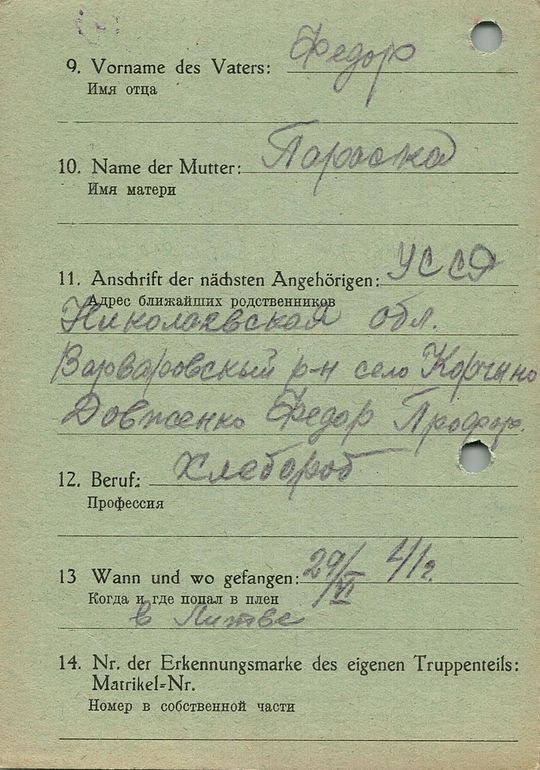 9. Vorname des Vaters: Федор
Имя отца
10. Name der Mutter: Параска
Имя матери
11. Anschrift der nächsten Angehörigen: УССР
Адрес ближайших родственников
Николаевская обл.
Варваровский р-н село Корчино
Довженко Федор Профор.
12. Beruf: Хлебороб
Профессия
13 Wann und wo gefangen: 29/VI 41г.
Когда и где попал в плен
в Литве
14. Nr. der Erkennungsmarke des eigenen Truppenteils:
Matrikel-Nr.
Номер в собственной части